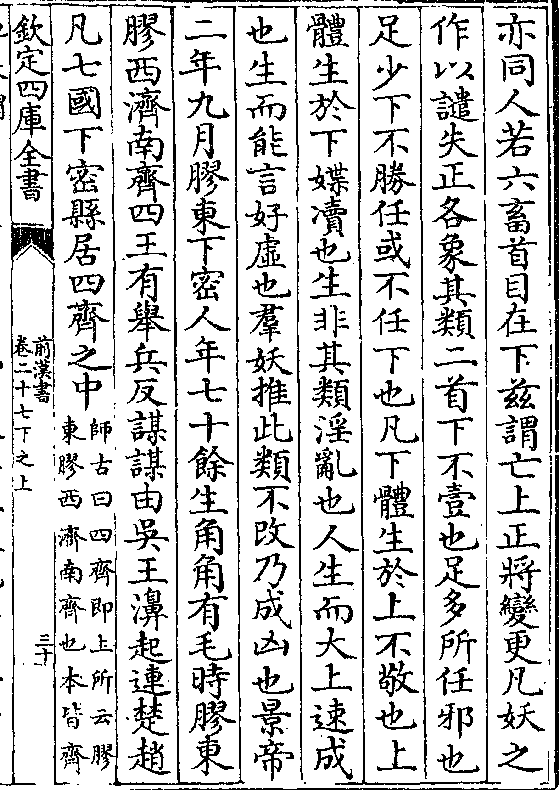 亦同人若六畜首目在下兹謂亡上正將變更凡妖之
作以譴失正各象其類二首下不壹也足多所任邪也
足少下不勝任或不任下也凡下體生於上不敬也上
體生於下媟瀆也生非其類淫亂也人生而大上速成
也生而能言好虛也羣妖推此類不改乃成凶也景帝
二年九月膠東下密人年七十餘生角角有毛時膠東
膠西濟南齊四王有舉兵反謀謀由吳王濞起連楚趙
凡七國下密縣居四齊之中
師古曰四齊即上所云膠
東膠西濟南齊也本皆齊
欽定四庫全書
前漢書
卷二十七下之上
三十